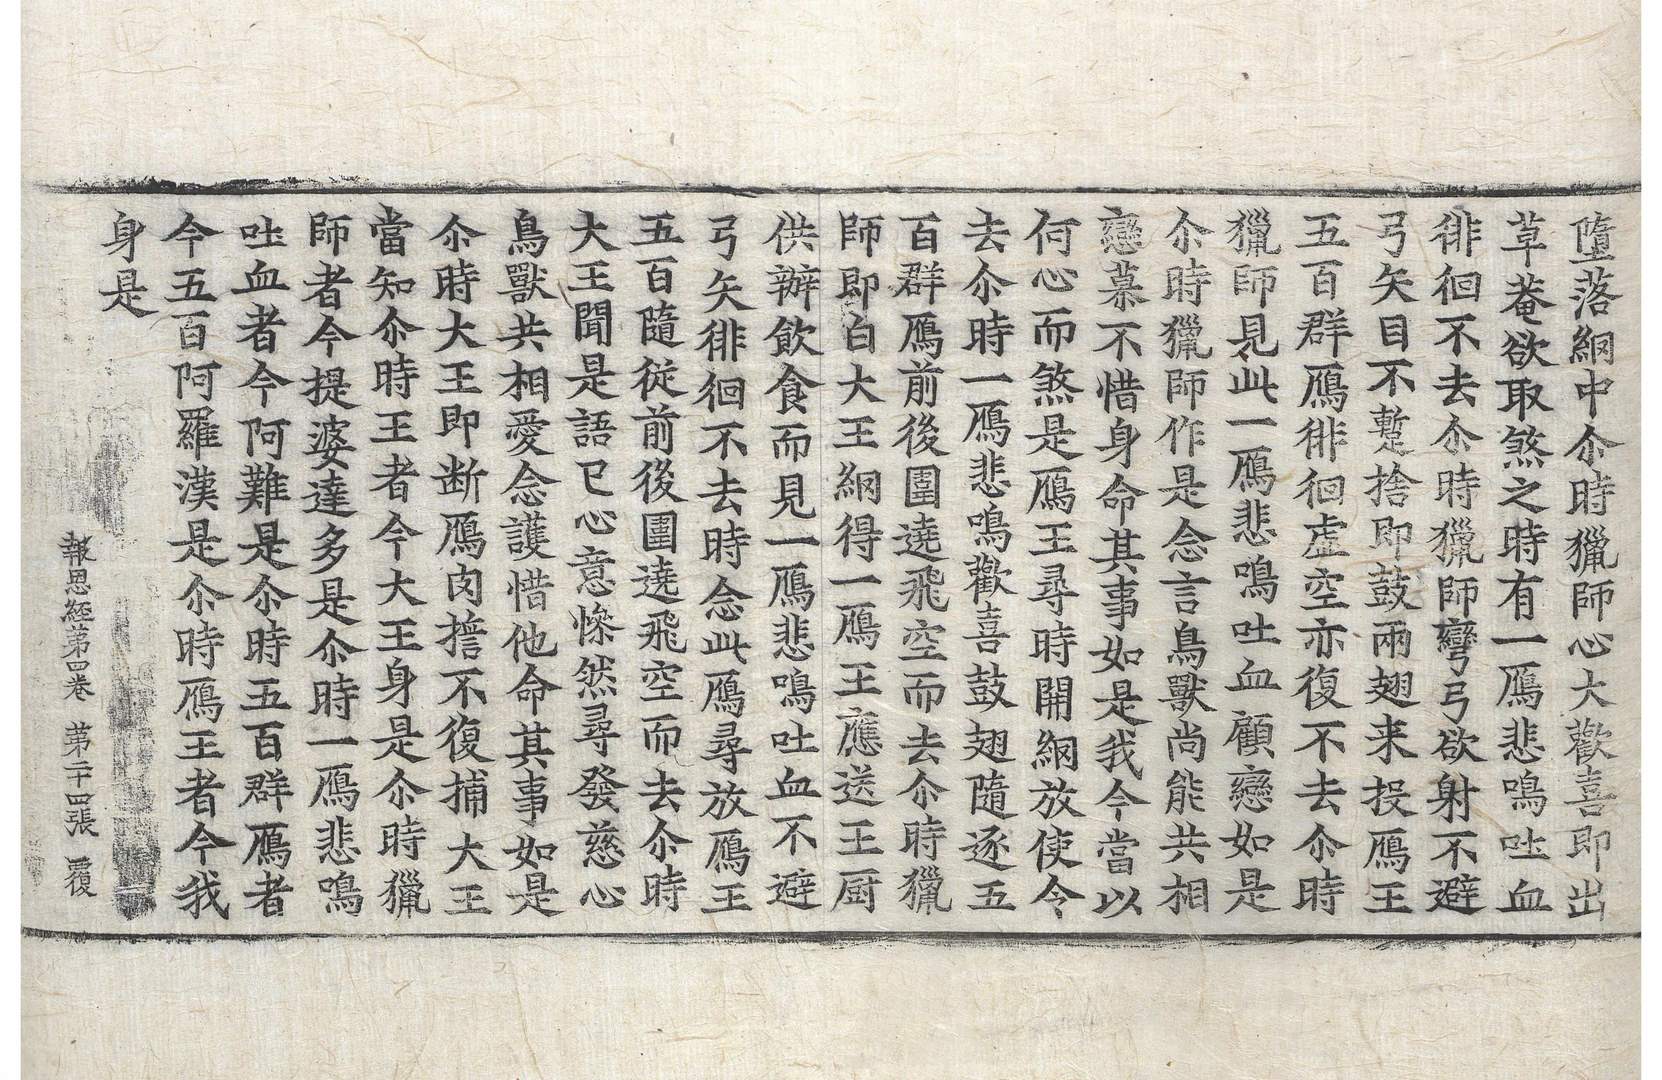 墮落網中尒時獵師心大歡喜即出
草菴欲取煞之時有一鴈悲鳴吐血
徘徊不去尒時獵師彎弓欲射不避
弓矢目不蹔捨即鼓兩翅来投鴈王
五百群鴈徘徊虛空亦復不去尒時
獵師見此一鴈悲鳴吐血顧戀如是
尒時獵師作是念言鳥獸尚能共相
戀慕不惜身命其事如是我今當以
何心而煞是鴈王尋時開網放使令
去尒時一鴈悲鳴歡喜鼓翅隨逐五
百群鴈前後圍遶飛空而去尒時獵
師即白大王網得一鴈王應送王厨
供辦飲食而見一鴈悲鳴吐血不避
弓矢徘徊不去時念此鴈尋放鴈王
五百隨從前後圍遶飛空而去尒時
大王聞是語已心意慘然尋發慈心
鳥獸共相愛念護惜他命其事如是
尒時大王即断鴈肉誓不復捕大王
當知尒時王者今大王身是尒時獵
師者今提婆達多是尒時一鴈悲鳴
吐血者今阿難是尒時五百群鴈者
今五百阿羅漢是尒時鴈王者今我
身是
報恩經第四卷 第二十四張 覆